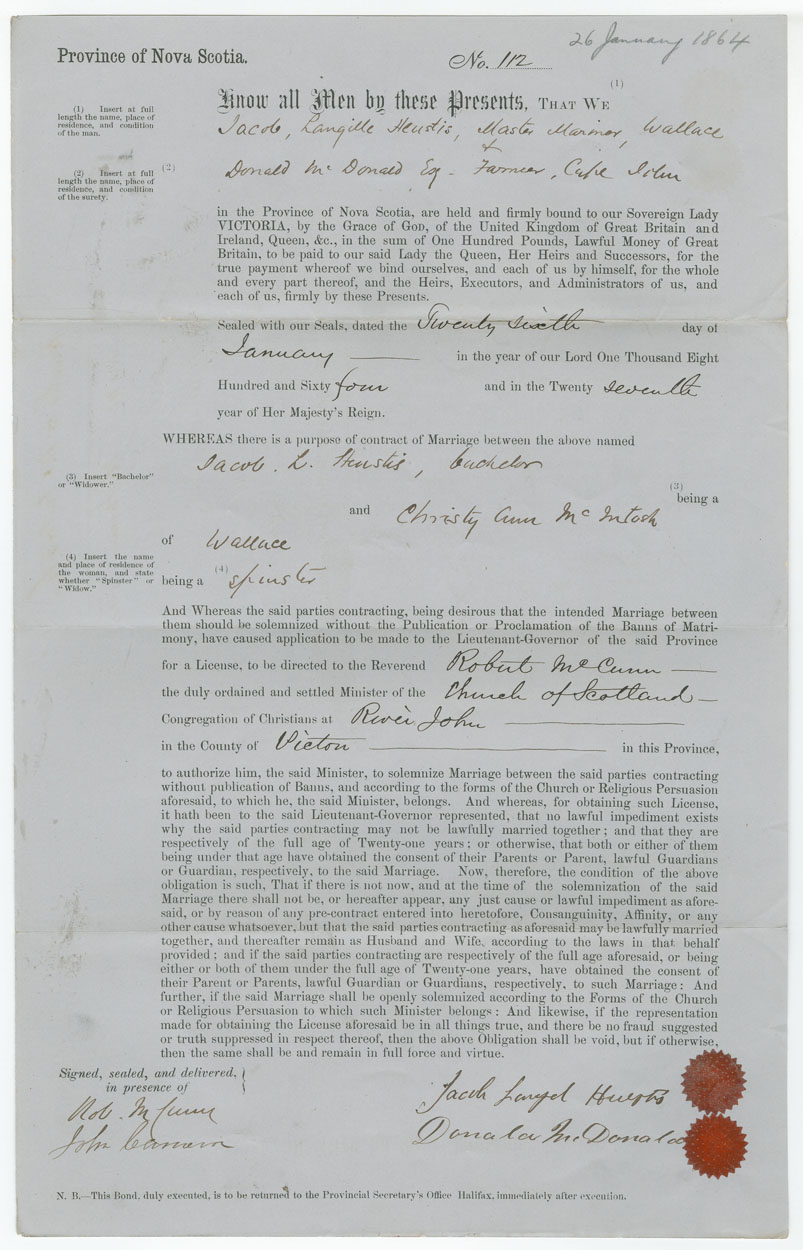 26 January 1864
Province of Nova Scotia.
No. 112
(1)
Know all Men by these Presents, THAT WE
(1) Insert at full
length the name, place of
residence, and condition
of the man.
Jacob, Langille Heustis, Master Mariner, Wallace
+
(2) Insert at full
length the name, place of
residence, and condition
of the surety.
(2)
Donald Mc Donald Esq - Farmer, Cape John
in the Province of Nova Scotia, are held and firmly bound to our Sovereign Lady
VICTORIA, by the Grace of GOD, of the United Kingdom of Great Britain and
Ireland, Queen, &c., in the sum of One Hundred Pounds, Lawful Money of Great
Britain, to be paid to our said Lady the Queen, Her Heirs and Successors, for the
true payment whereof we bind ourselves, and each of us by himself, for the whole
and every part thereof, and the Heirs, Executors, and Administrators of us, and
each of us, firmly by these Presents.
Sealed with our Seals, dated the Twenty sixth day of
January in the year of our Lord One Thousand Eight
Hundred and Sixty four and in the Twenty seventh
year of Her Majesty's Reign.
WHEREAS there is a purpose of contract of Marriage between the above named
Jacob. L. Heustis, bachelor
(3) Insert "Bachelor"
or "Widower."
(3)
being a
and Christy Ann Mc Intosh
of Wallace
(4) Insert the name
and place of residence of
the woman, and state
whether "Spinster" or
"Widow."
being a (4) spinster
And Whereas the said parties contracting, being desirous that the intended Marriage between
them should be solemnized without the Publication or Proclamation of the Banns of Matri-
mony, have caused application to be made to the Lieutenant-Governor of the said Province
for a License, to be directed to the Reverend Robert McCunn
the duly ordained and settled Minister of the Church of Scotland
Congregation of Christians at River John
in the County of Pictou in this Province,
to authorize him, the said Minister, to solemnize Marriage between the said parties contracting
without publication of Banns, and according to the forms of the Church or Religious Persuasion
aforesaid, to which he, the said Minister, belongs. And whereas, for obtaining such License,
it hath been to the said Lieutenant-Governor represented, that no lawful impediment exists
why the said parties contracting may not be lawfully married together; and that they are
respectively of the full age of Twenty-one years; or otherwise, that both or either of them
being under that age have obtained the consent of their Parents or Parent, lawful Guardians
or Guardian, respectively, to the said Marriage. Now, therefore, the condition of the above
obligation is such, That if there is not now, and at the time of the solemnization of the said
Marriage there shall not be, or hereafter appear, any just cause or lawful impediment as afore-
said, or by reason of any pre-contract entered into heretofore, Consanguinity, Affinity, or any
other cause whatsoever, but that the said parties contracting as aforesaid may be lawfully married
together, and thereafter remain as Husband and Wife, according to the laws in that behalf
provided; and if the said parties contracting are respectively of the full age aforesaid, or being
either or both of them under the full age of Twenty-one years, have obtained the consent of
their Parent or Parents, lawful Guardian or Guardians, respectively, to such Marriage: And
further, if the said Marriage shall be openly solemnized according to the Forms of the Church
or Religious Persuasion to which such Minister belongs: And likewise, if the representation
made for obtaining the License aforesaid be in all things true, and there be no fraud suggested
or truth suppressed in respect thereof, then the above Obligation shall be void, but if otherwise,
then the same shall be and remain in full force and virtue.
Signed, sealed, and delivered,
in presence of
Rob. McCunn
John Cameron
Jacob Langel Huestis
Donald McDonald
N. B.—This Bond, duly executed, is to be returned to the Provincial Secretary's Office Halifax, immediately after execution.